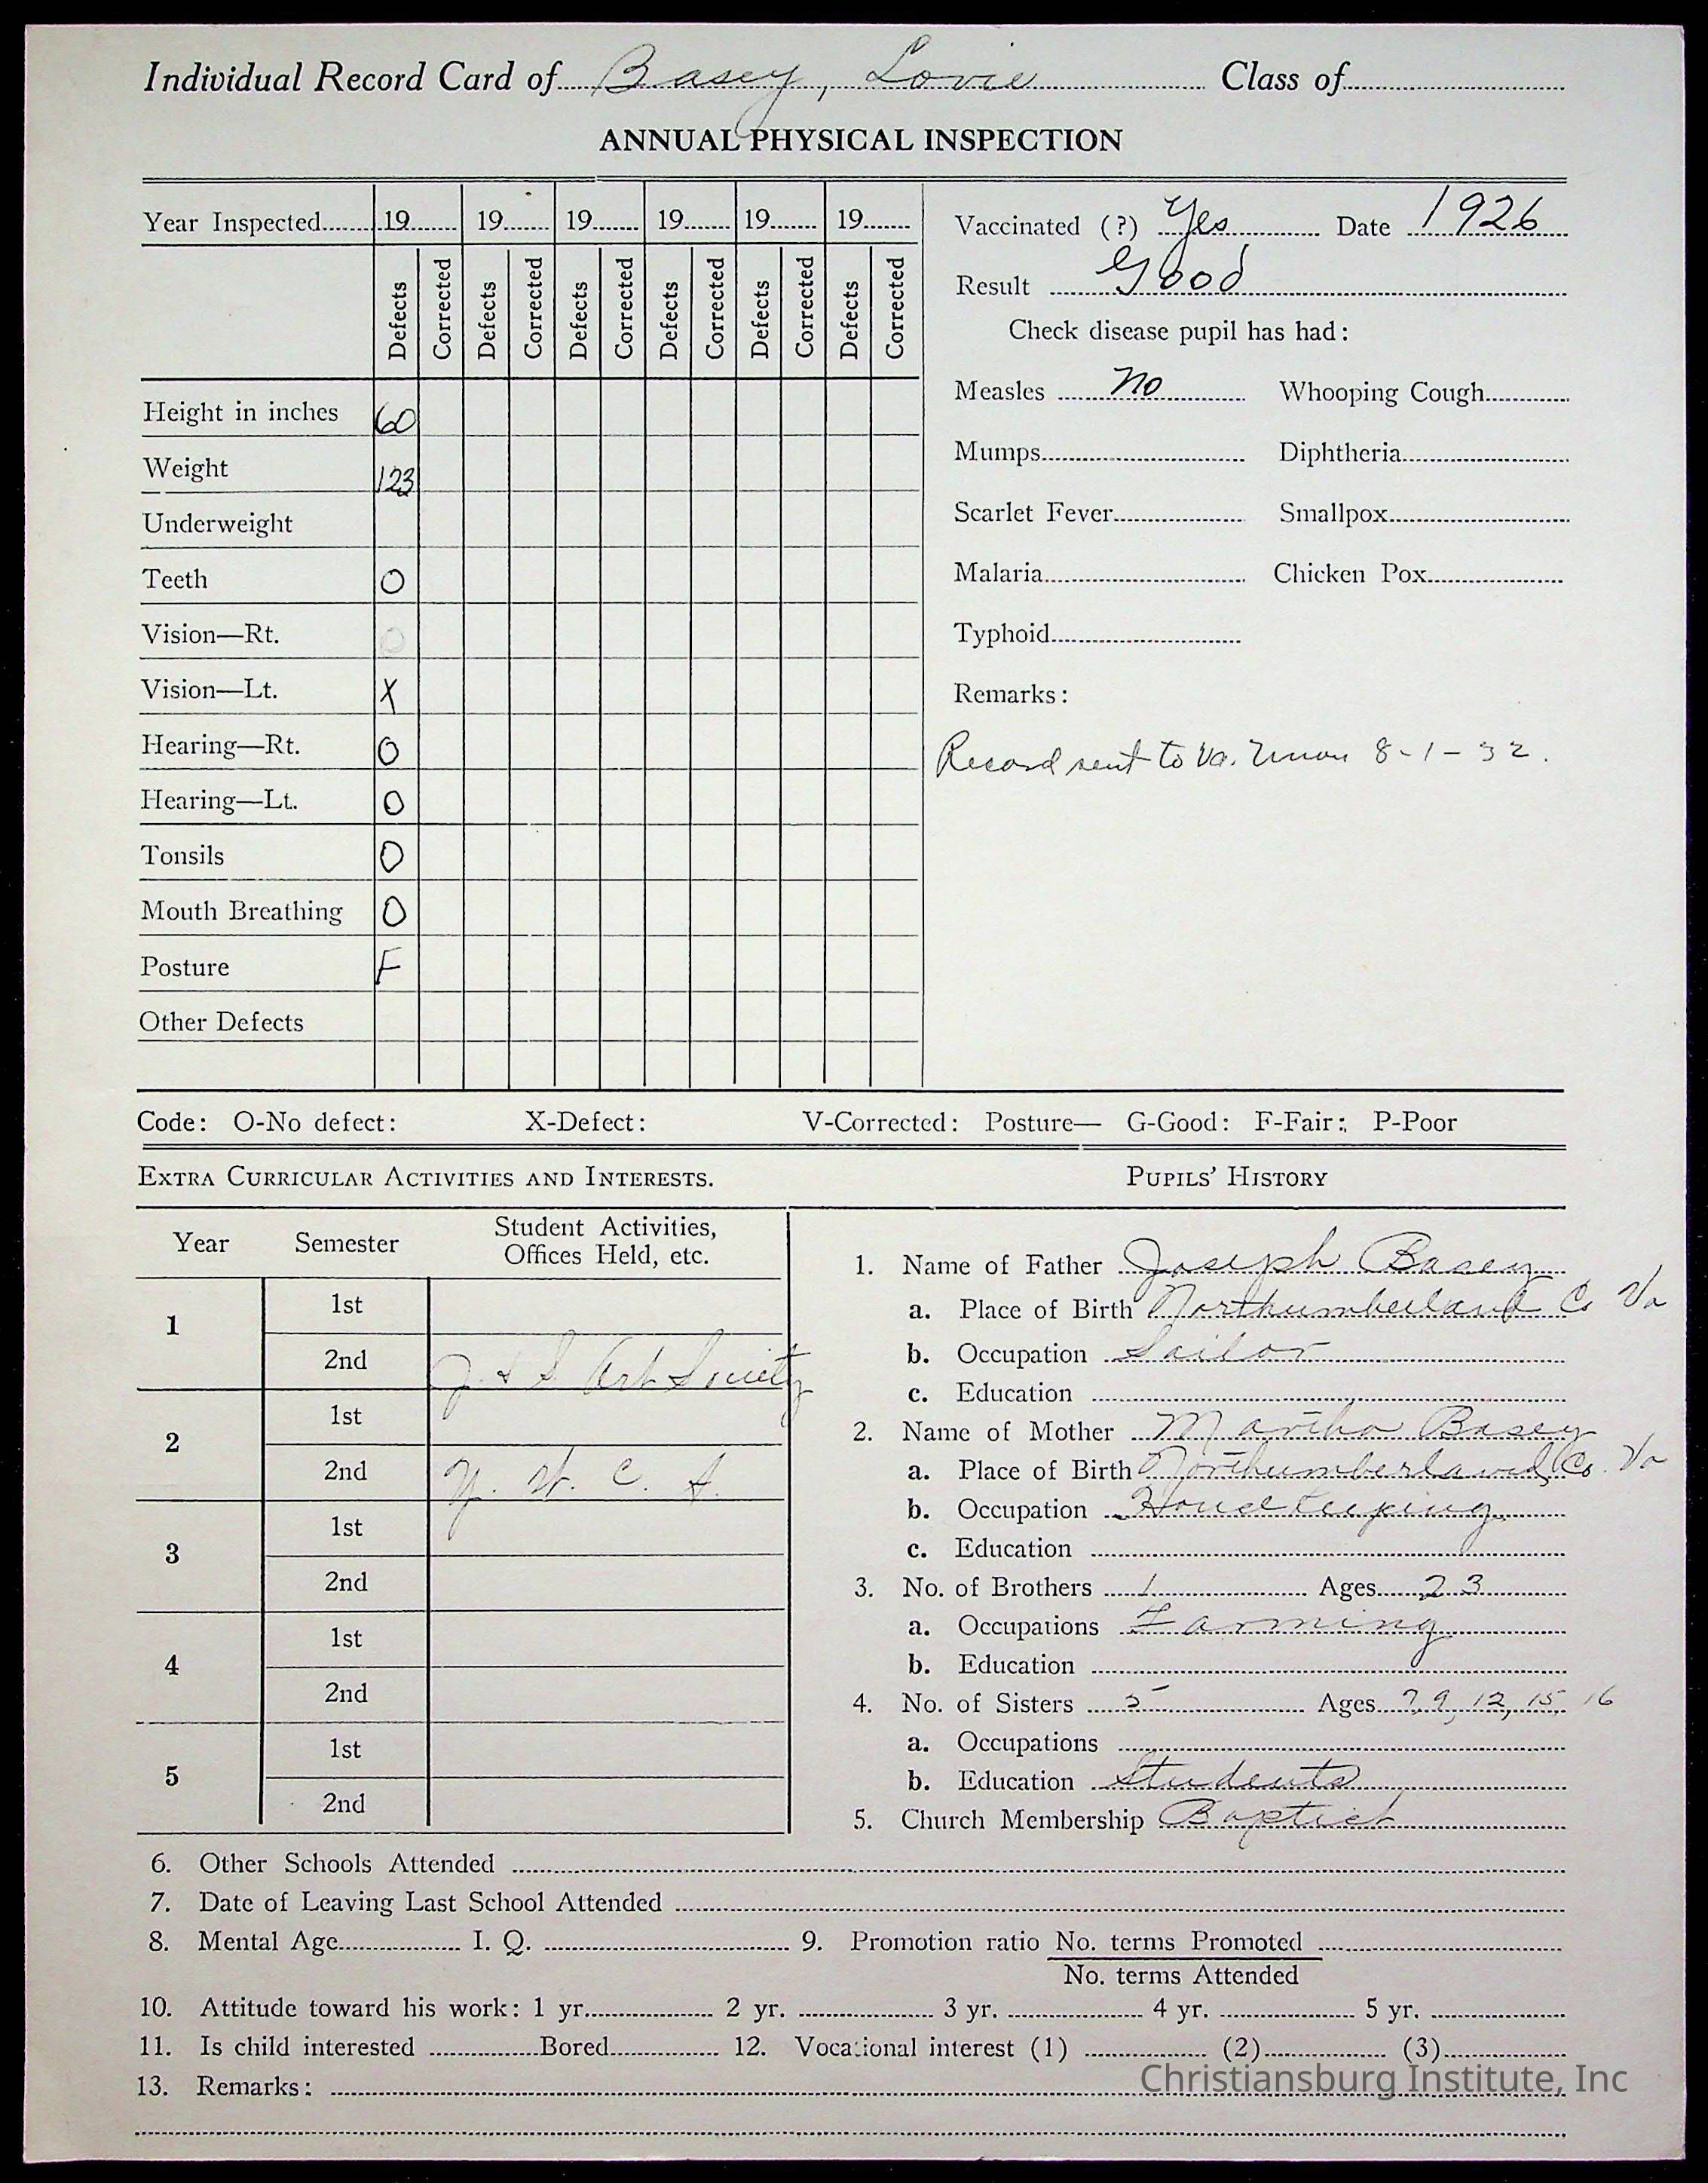 Individual Record Card of Basey, Lovie Class of
ANNUAL PHYSICAL INSPECTION
Year Inspected 19 19 19 19 19 19
Defects Corrected Defects Corrected Defects Corrected Defects Corrected Defects Corrected Defects Corrected
Height in inches 60
Weight 123
Underweight
Teeth O
Vision—Rt. O
Vision—Lt. X
Hearing—Rt. O
Hearing—Lt. O
Tonsils O
Mouth Breathing O
Posture F
Other Defects
Vaccinated (?) Yes Date 1926
Result Good
Check disease pupil has had:
Measles no Whooping Cough
Mumps Diphtheria
Scarlet Fever Smallpox
Malaria Chicken Pox
Typhoid
Remarks:
Record sent to Va. Union 8-1-32.
Code: O-No defect: X-Defect: V-Corrected: Posture— G-Good: F-Fair: P-Poor
EXTRA CURRICULAR ACTIVITIES AND INTERESTS.
Year Semester Student Activities,
Offices Held, etc.
1 1st
2nd J. & S Art Society
2 1st
2nd Y. W. C. A.
3 1st
2nd
4 1st
2nd
5 1st
2nd
PUPILS' HISTORY
1. Name of Father Joseph Basey
a. Place of Birth Northumberland Co Va
b. Occupation Sailor
c. Education
2. Name of Mother Martha Basey
a. Place of Birth Northumberland, Co. Va
b. Occupation Housekeeping
c. Education
3. No. of Brothers 1 Ages 23
a. Occupations Farming
b. Education
4. No. of Sisters 5 Ages 7, 9, 12, 15, 16
a. Occupations
b. Education Students
5. Church Membership Baptist
6. Other Schools Attended
7. Date of Leaving Last School Attended
8. Mental Age I. Q. 9. Promotion ratio No. terms Promoted
No. terms Attended
10. Attitude toward his work: 1 yr. 2 yr. 3 yr. 4 yr. 5 yr.
11. Is child interested Bored 12. Vocational interest (1) (2) (3)
13. Remarks:
Christiansburg Institute, Inc